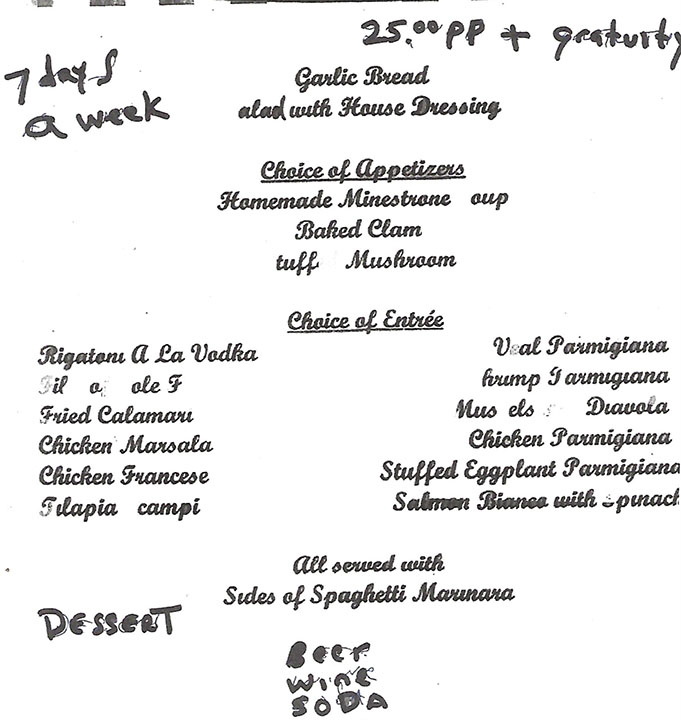 25.00 PP + gratuity
7 days
a week
Garlic Bread
alad with House Dressing
Choice of Appetizers
Homemade Minestrone oup
Baked Clam
tuff Mushroom
Choice of Entrée
Rigatoni A La Vodka
Fil o ole F
Fried Calamari
Chicken Marsala
Chicken Francese
Tilapia campi
Veal Parmigiana
hrimp Parmigiana
Mus els Diavola
Chicken Parmigiana
Stuffed Eggplant Parmigiana
Salmon Bianco with Spinach
All served with
Sides of Spaghetti Marinara
DESSERT
Beer
wine
SODA